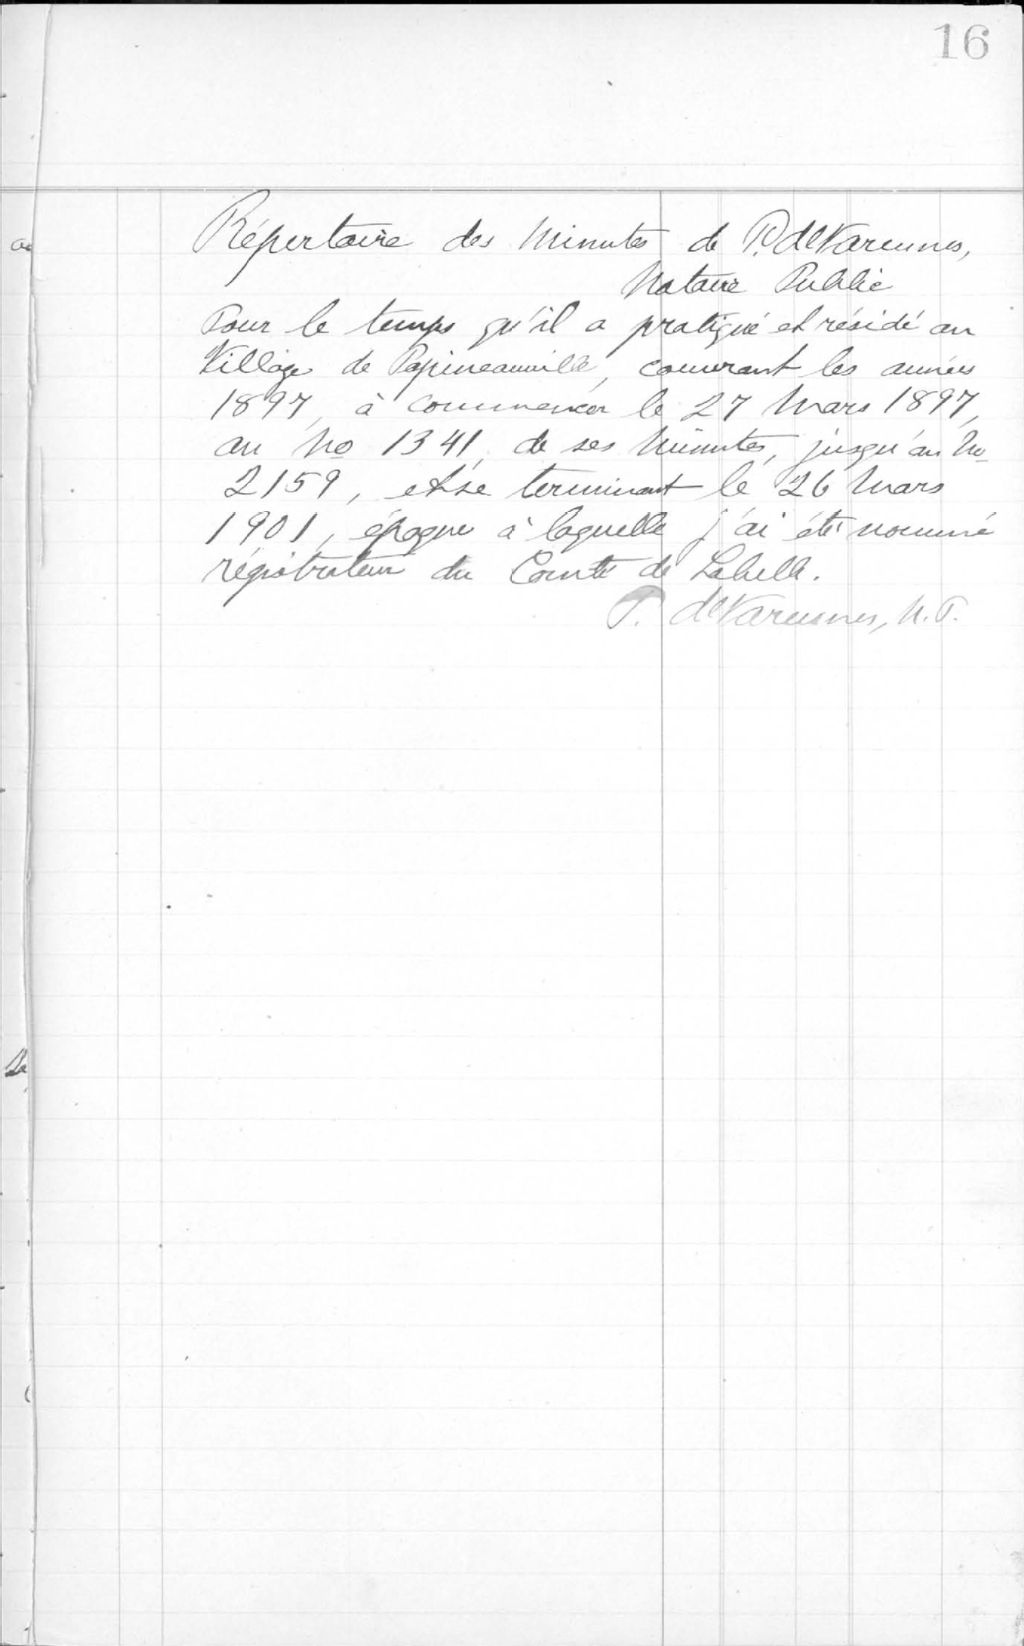 16
Répertoire des Minutes de P. deVarennes,
Notaire Public
Pour le temps qu'il a pratiqué et résidé au
Village de Papineauville, couvrant les années
1897, à commencer le 27 Mars 1897,
au No 1341, de ses Minutes, jusqu'au No
2159, et se terminant le 26 Mars
1901, époque à laquelle j'ai été nommé
régistrateur du Comté de Labelle.
P. deVarennes, N.P.